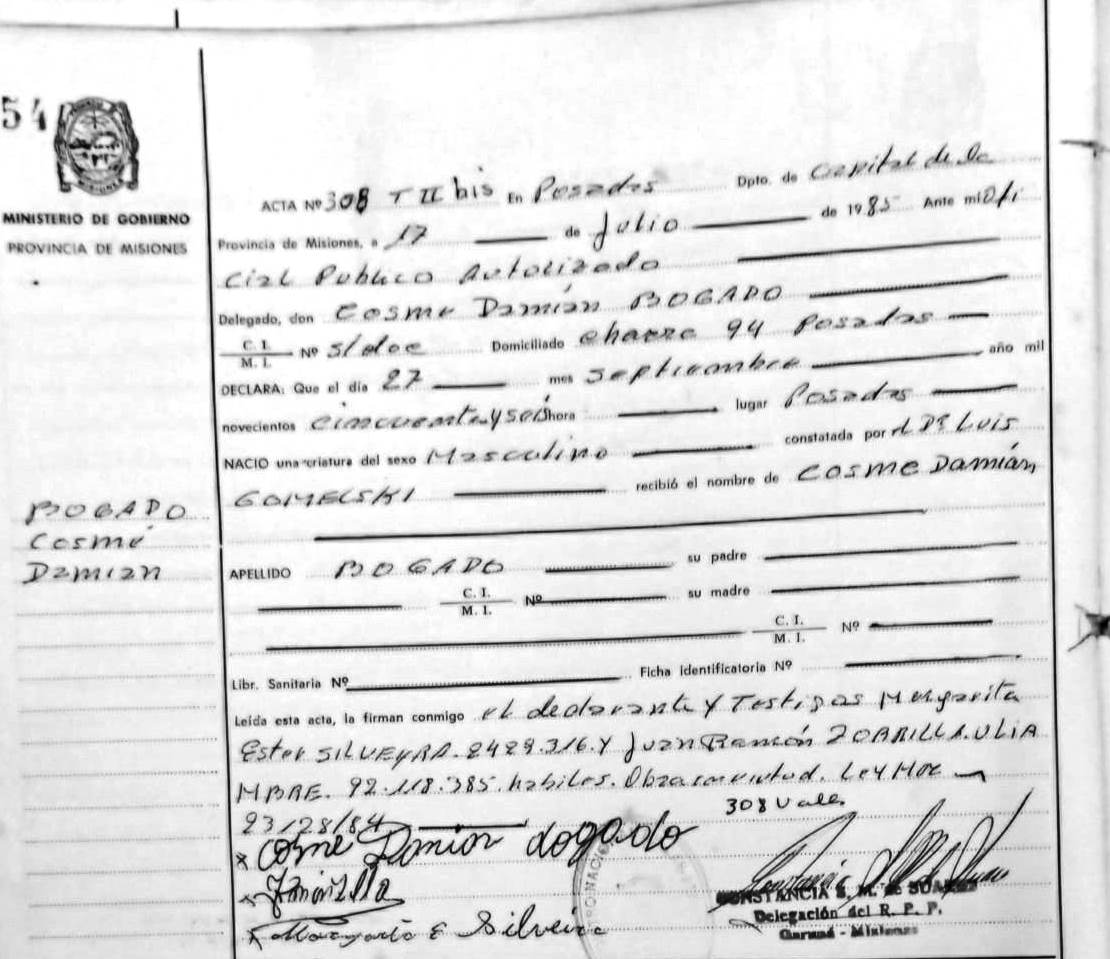 54
MINISTERIO DE GOBIERNO
PROVINCIA DE MISIONES
BOGADO
Cosmé
Damian
ACTA Nº 308 T II bis En Posadas Dpto. de Capital de la
Provincia de Misiones, a 17 de Julio de 1985 Ante mi Ofi
cial Publico Autorizado
Delegado, don Cosme Damián BOGADO
C. I.
M. I. Nº s/doc Domiciliado chacra 94 Posadas
DECLARA: Que el día 27 mes septiembre año mil
novecientos cincuenta y seis hora lugar Posadas
NACIO una criatura del sexo Masculino constatada por el Dr Luis
GOMELSKI recibió el nombre de Cosme Damián,
APELLIDO BOGADO su padre
C. I.
M. I. Nº su madre
C. I.
M. I. Nº
Libr. Sanitaria Nº Ficha identificatoria Nº
Leída esta acta, la firman conmigo el declarante y Testigos Margarita
Ester SILVEYRA. 2429.316. Y Juan Ramón
MBRE. 92.118.385. habiles. Ley
23/28/84 308 Vale.
x Cosme Damian Bogado
x Margarita E Silveira
CONSTANCIA S. M. de SUAREZ
Delegación del R. P. P.
Garupá - Misiones